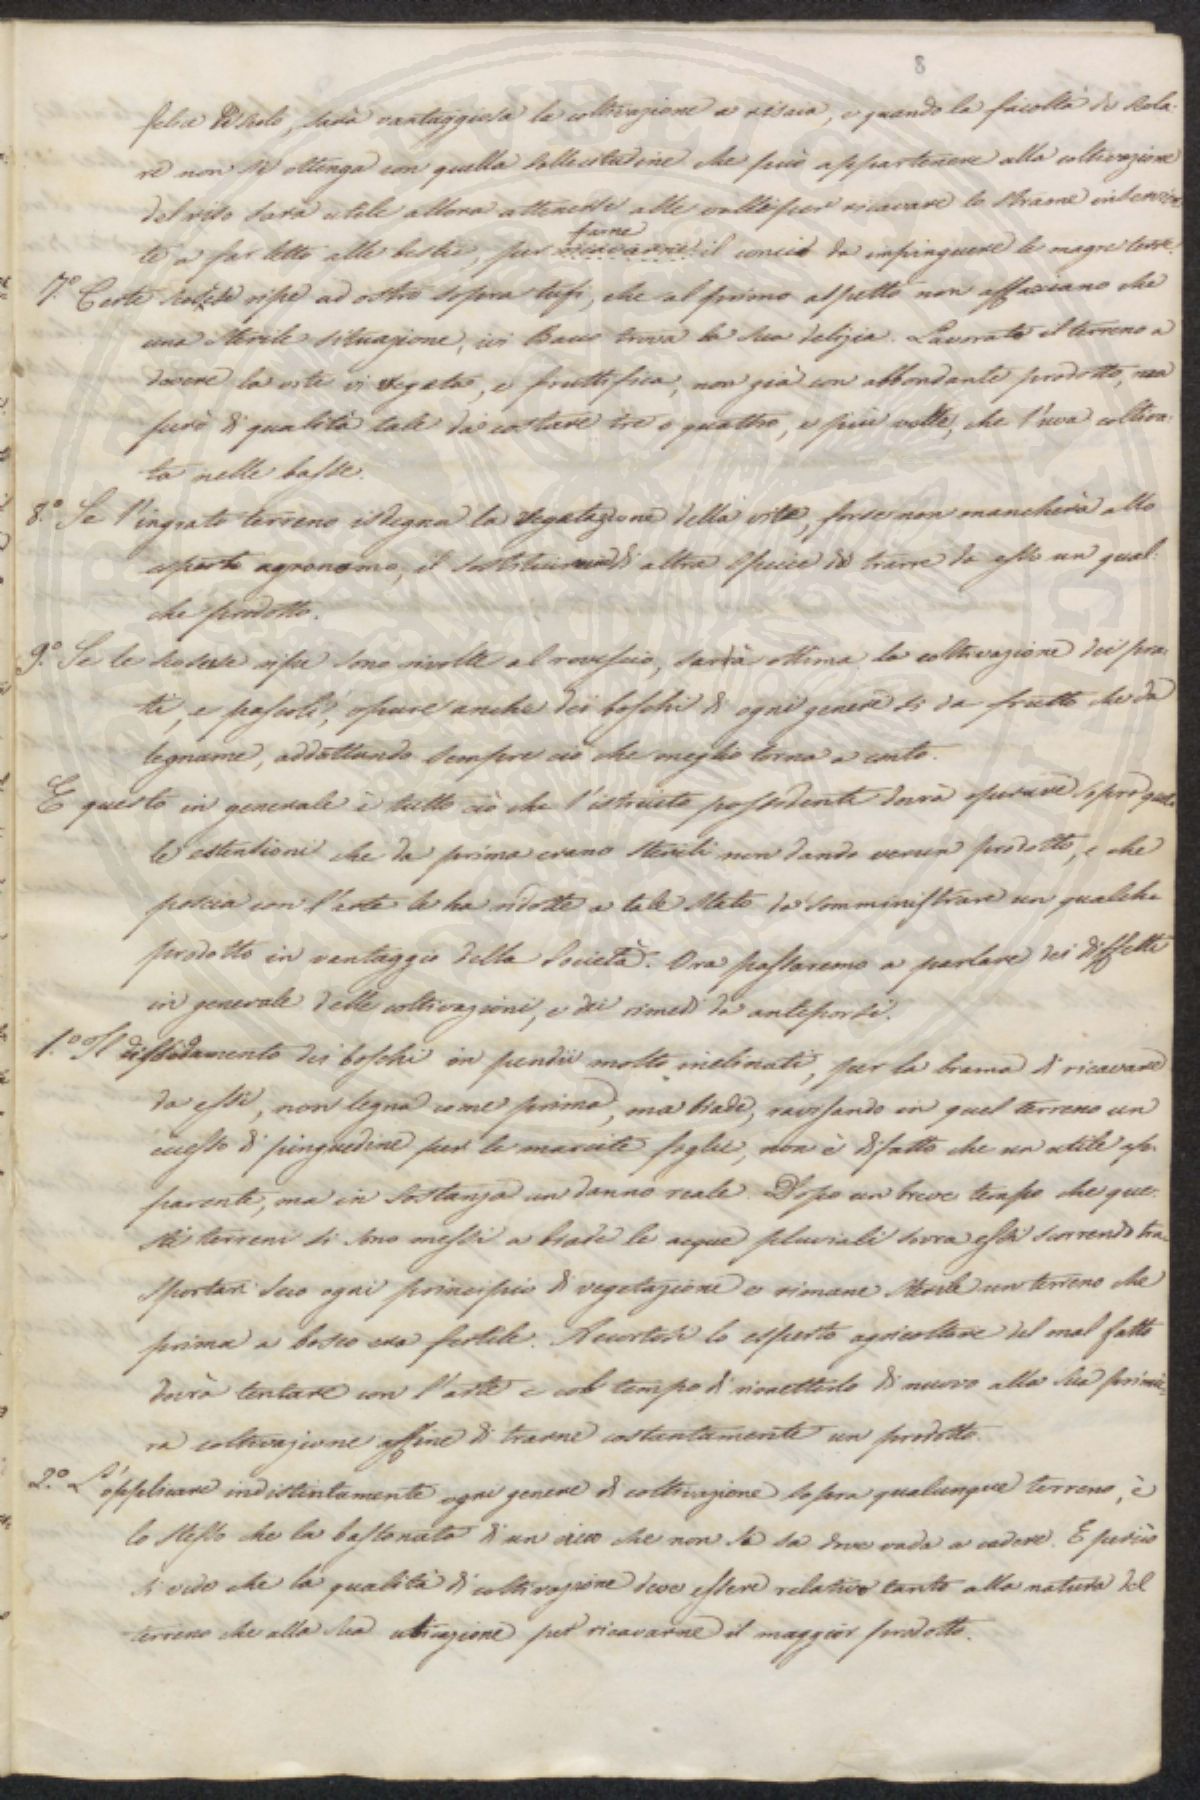 8
felice scolo, sarà vantaggiosa la coltivazione a risaia, e quando la facoltà di scola-
re non si ottenga con quella sollecitudine che può appartenere alla coltivazione
del riso sarà utile allora attenersi alle valli per ricavare lo strame inservien-
te a far letto alle bestie, per farne il concio da impinguere le magre terre.
7.° Certe scoscese ripe ad ostro sopra tufi, che al primo aspetto non affacciano che
una sterile situazione, ivi Bacco trova la sua delizia. Lavorato il terreno a
dovere la vite vi vegeta, e fruttifica, non già con abbondante prodotto, ma
però di qualità tale da costare tre o quattro, e più volte, che l'uva coltiva-
ta nelle basse.
8.° Se l'ingrato terreno isdegna la vegetazione della vite, forse non mancherà allo
esperto agronomo, il sostituirvi di altra specie da trarre da esso un qual-
che prodotto.
9.° Se le scoscese ripe sono rivolte al rovescio, sarà ottima la coltivazione dei pra-
ti, e pascoli, opure anche dei boschi di ogni genere sì da frutto che da
legname, addattando sempre ciò che meglio torna a conto.
E questo in generale è tutto ciò che l'istruito possidente dovrà operare sopra quel-
le estentioni che da prima erano sterili non dando verun prodotto, e che
poscia con l'arte le ha ridotte a tale stato da somministrare un qualche
prodotto in vantaggio della Società. Ora passaremo a parlare dei diffetti
in generale delle coltivazioni, e dei rimedi da anteporsi.
1.° Il dissodamento dei boschi in pendii molto inclinati, per la brama di ricavare
da essi, non legna come prima, ma biade, ravisando in quel terreno un
eccesso di pinguedine per le marcite foglie, non è difatto che un utile ap-
parente, ma in sostanza un danno reale. Dopo un breve tempo che que-
sti terreni si sono messi a biade le acque pluviali sovra essi scorrendo tra-
sportan seco ogni principio di vegetazione e rimane sterile un terreno che
prima a bosco era fertile. Accortosi lo esperto agricoltore del mal fatto
dovrà tentare con l'arte e col tempo di rimetterlo di nuovo alla sua primie-
ra coltivazione affine di trarne costantemente un prodotto.
2.° L'applicare indistintamente ogni genere di coltivazione sopra qualunque terreno, è
lo stesso che la bastonata di un cieco che non si sa dove vada a cadere. E perciò
si vede che la qualità di coltivazione deve essere relativa tanto alla natura del
terreno che alla sua ubicazione per ricavarne il maggior prodotto.